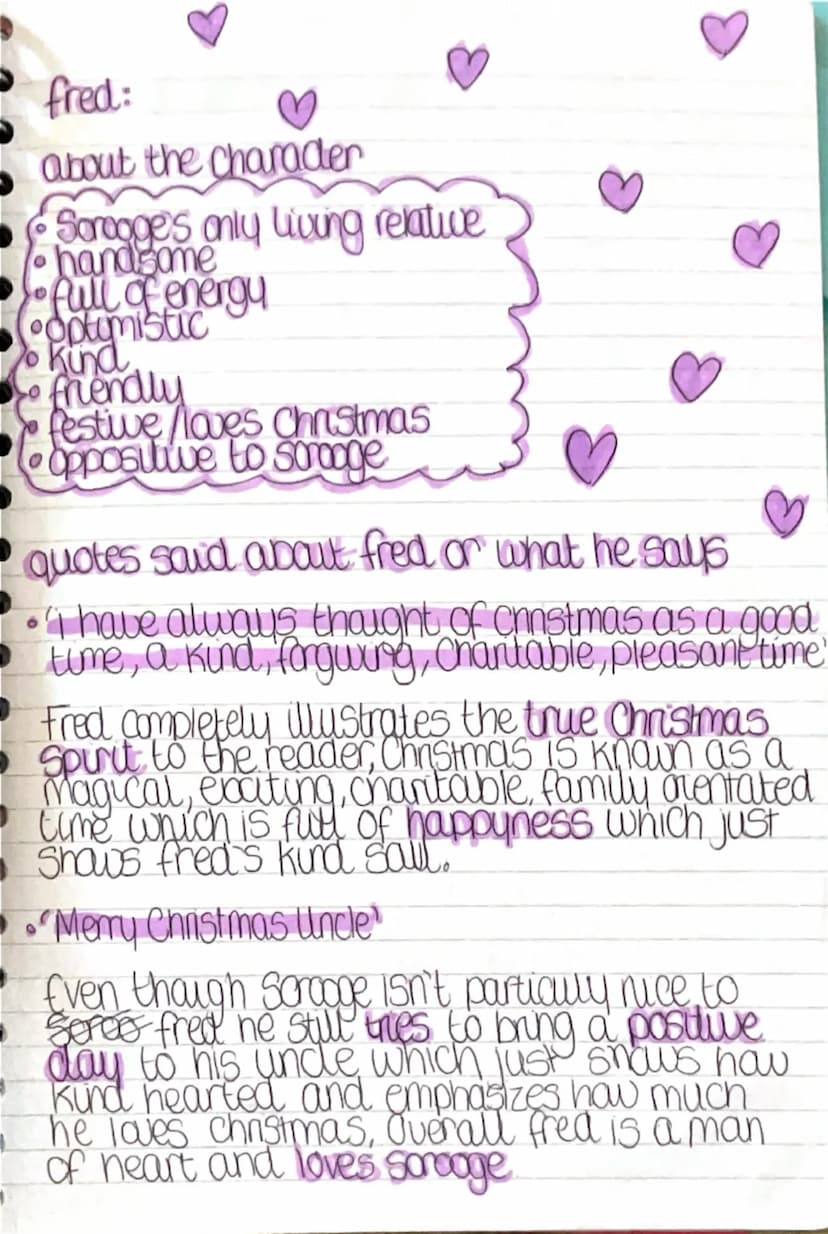 fred:
about the character
• Scrooge's only living relative
• handsome
• full of energy
• optimistic
• kind
• friendly
• festive/loves Christmas
• oppositive to scrooge
quotes said about fred or what he says
• 'i have always thought of christmas as a good
time, a kind, forgiving, charitable, pleasant time'
Fred completely illustrates the true Christmas
Spirit to the reader, Christmas is known as a
magical, exciting, charitable, family orientated
time which is full of happyness which just
shows fred's kind soul.
• 'Merry Christmas Uncle'
Even though Scrooge isn't particully nice to
fred he still tries to bring a positive
day to his uncle which just shows how
kind hearted and emphasizes how much
he loves christmas, Overall fred is a man
of heart and loves scrooge